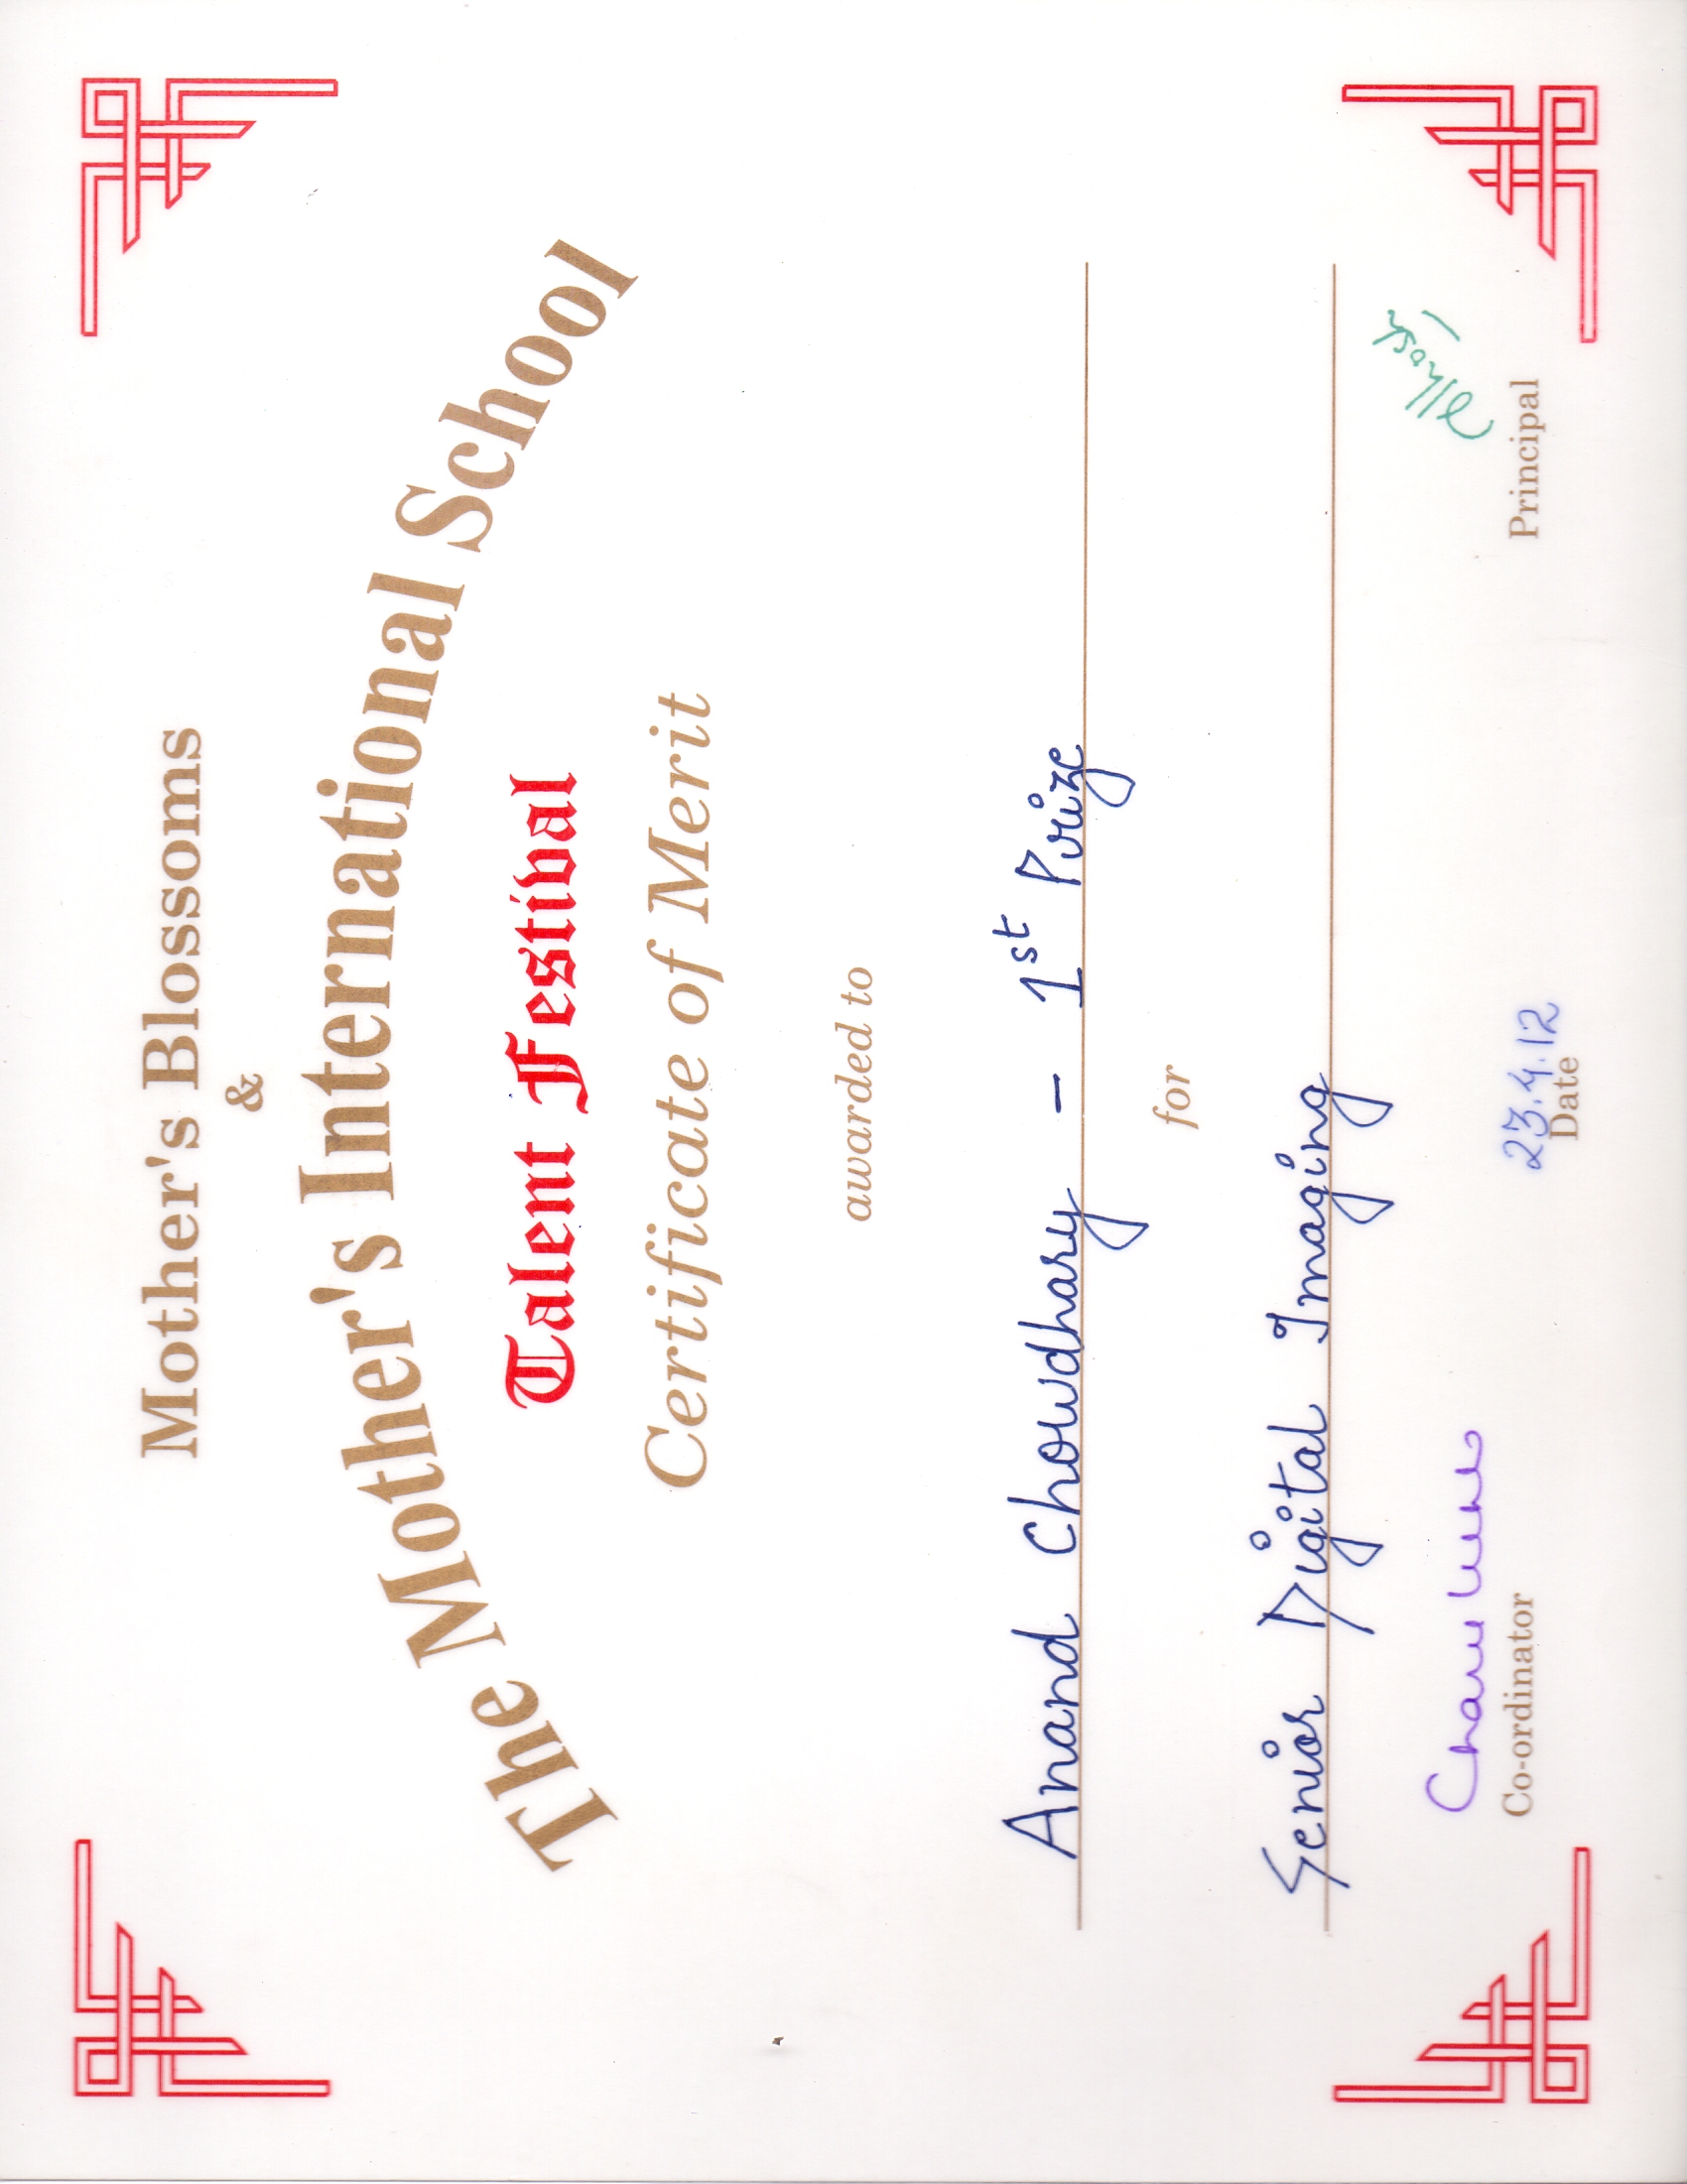 Mother's Blossoms
&
The Mother's International School
Talent Festival
Certificate of Merit
awarded to
Anand Chowdhary – 1st Prize
for
Senior Digital Imaging
Co-ordinator
23.4.12
Date
Principal